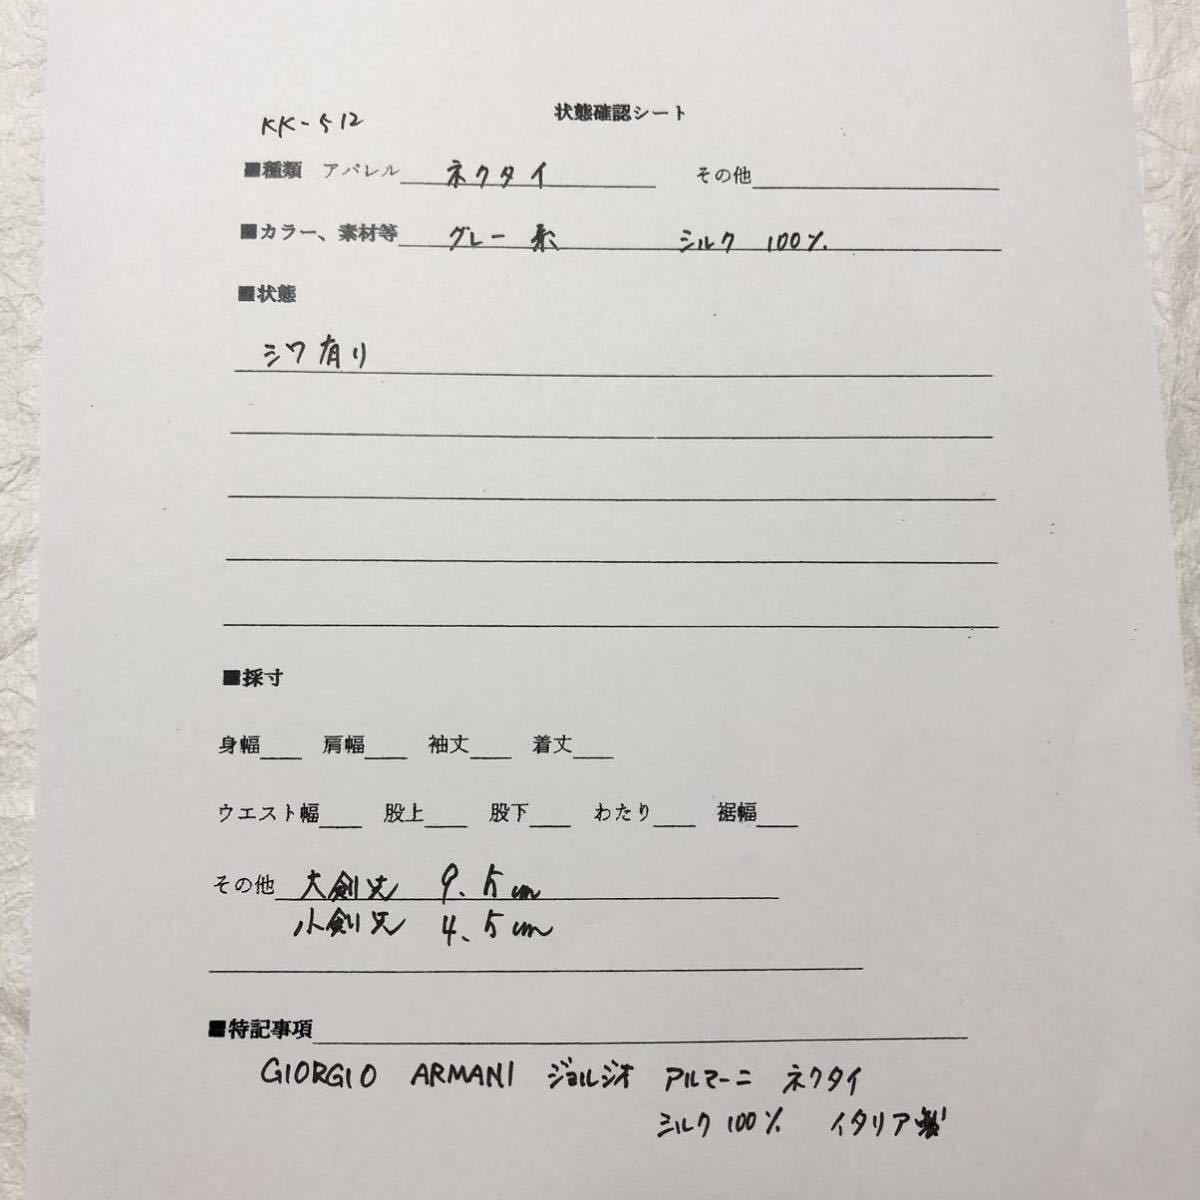 KK-512
状態確認シート
■種類 アパレル ネクタイ その他
■カラー、素材等 グレー系 シルク 100%
■状態
シワ有り
■採寸
身幅 肩幅 袖丈 着丈
ウエスト幅 股上 股下 わたり 裾幅
その他 大剣先 9.5cm
小剣先 4.5cm
■特記事項
GIORGIO ARMANI ジョルジオ アルマーニ ネクタイ
シルク100% イタリア製